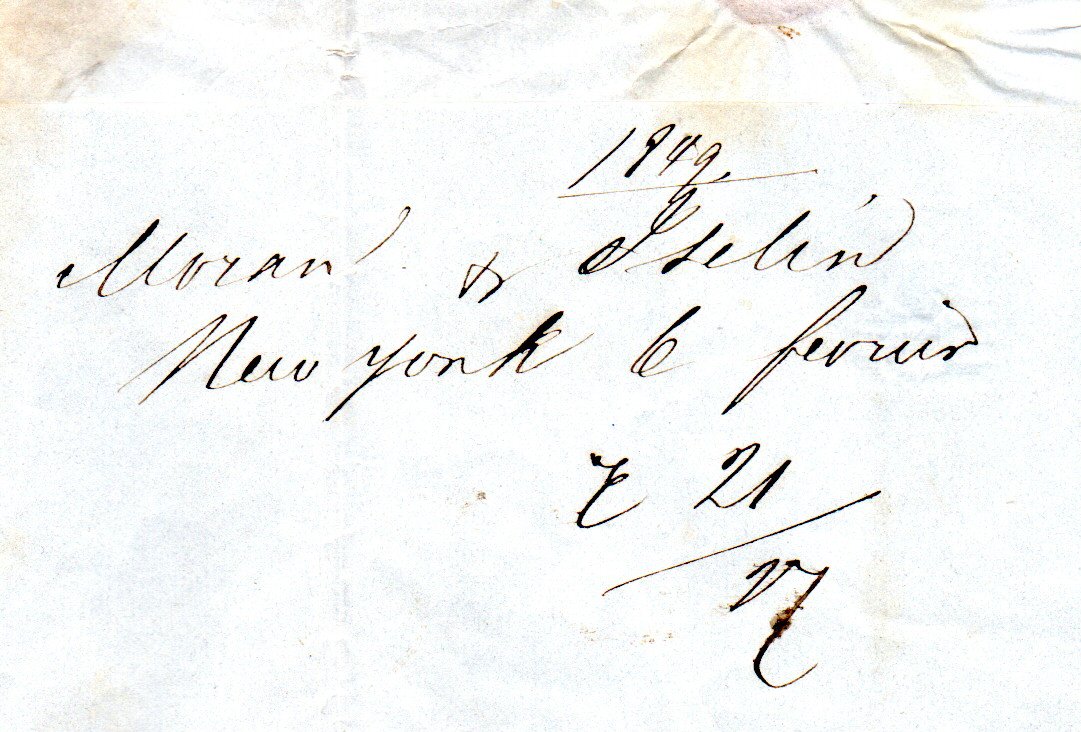 1849.
Moran & Iselin
New York 6 fevrier
21